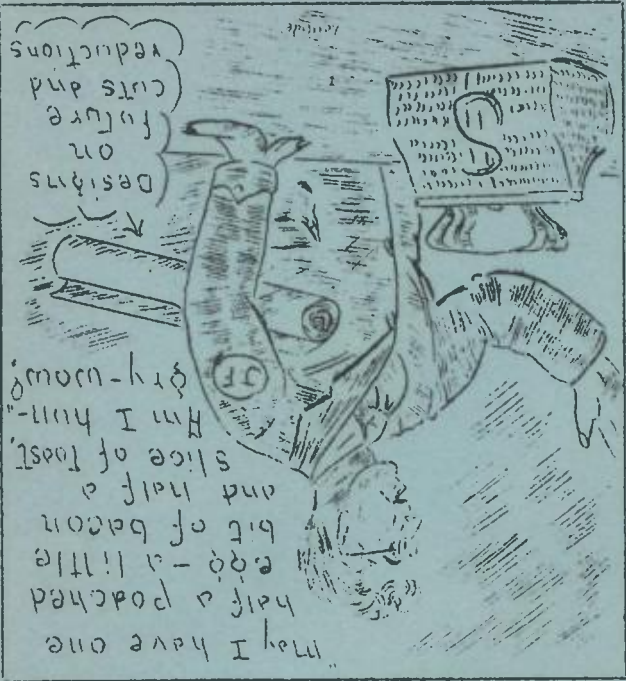 "May I have one
half a poached
egg – a little
bit of bacon
and half a
slice of toast".
Am I hun-
gry -
Designs
on
future
cuts and
reductions
S